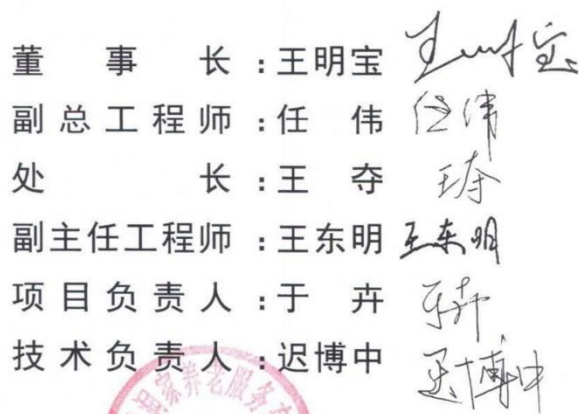 董事长：王明宝 王明宝
副总工程师：任伟 任伟
处长：王夺 王夺
副主任工程师：王东明 王东明
项目负责人：于卉 于卉
技术负责人：迟博中 迟博中
家养老服务